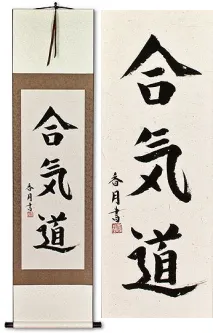 合気道
春月書
合気道
春月書